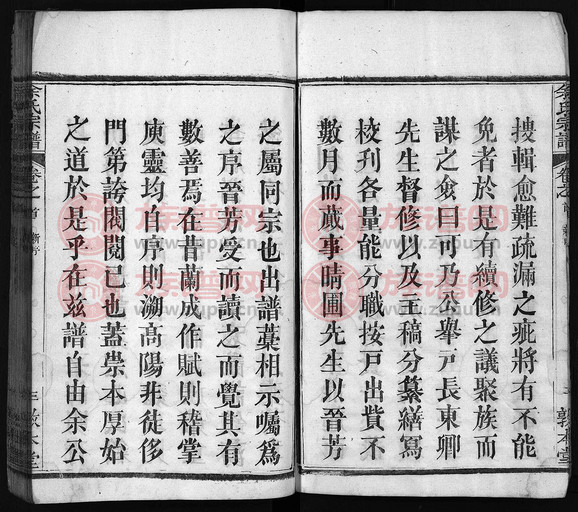 搜輯愈難疏漏之疵將有不能
免者於是有續修之議聚族而
謀之僉曰可乃公舉戶長東卿
先生督修以及主稿分纂繕寫
校刋各量能分職按戶出貲不
數月而蕆事晴圃先生以晉芳
之屬同宗也出譜藁相示囑爲
之序晉芳受而讀之而覺其有
數善焉在昔蘭成作賦則稽掌
庾靈均自序則溯高陽非徒侈
門第誇閥閱已也蓋崇本厚始
之道於是乎在兹譜自由余公
余氏宗譜
卷之首
新序
敦本堂
余氏宗譜
卷之首
新序
三 敦本堂
族譜网
www.zupu.cn
族譜网
www.zupu.cn